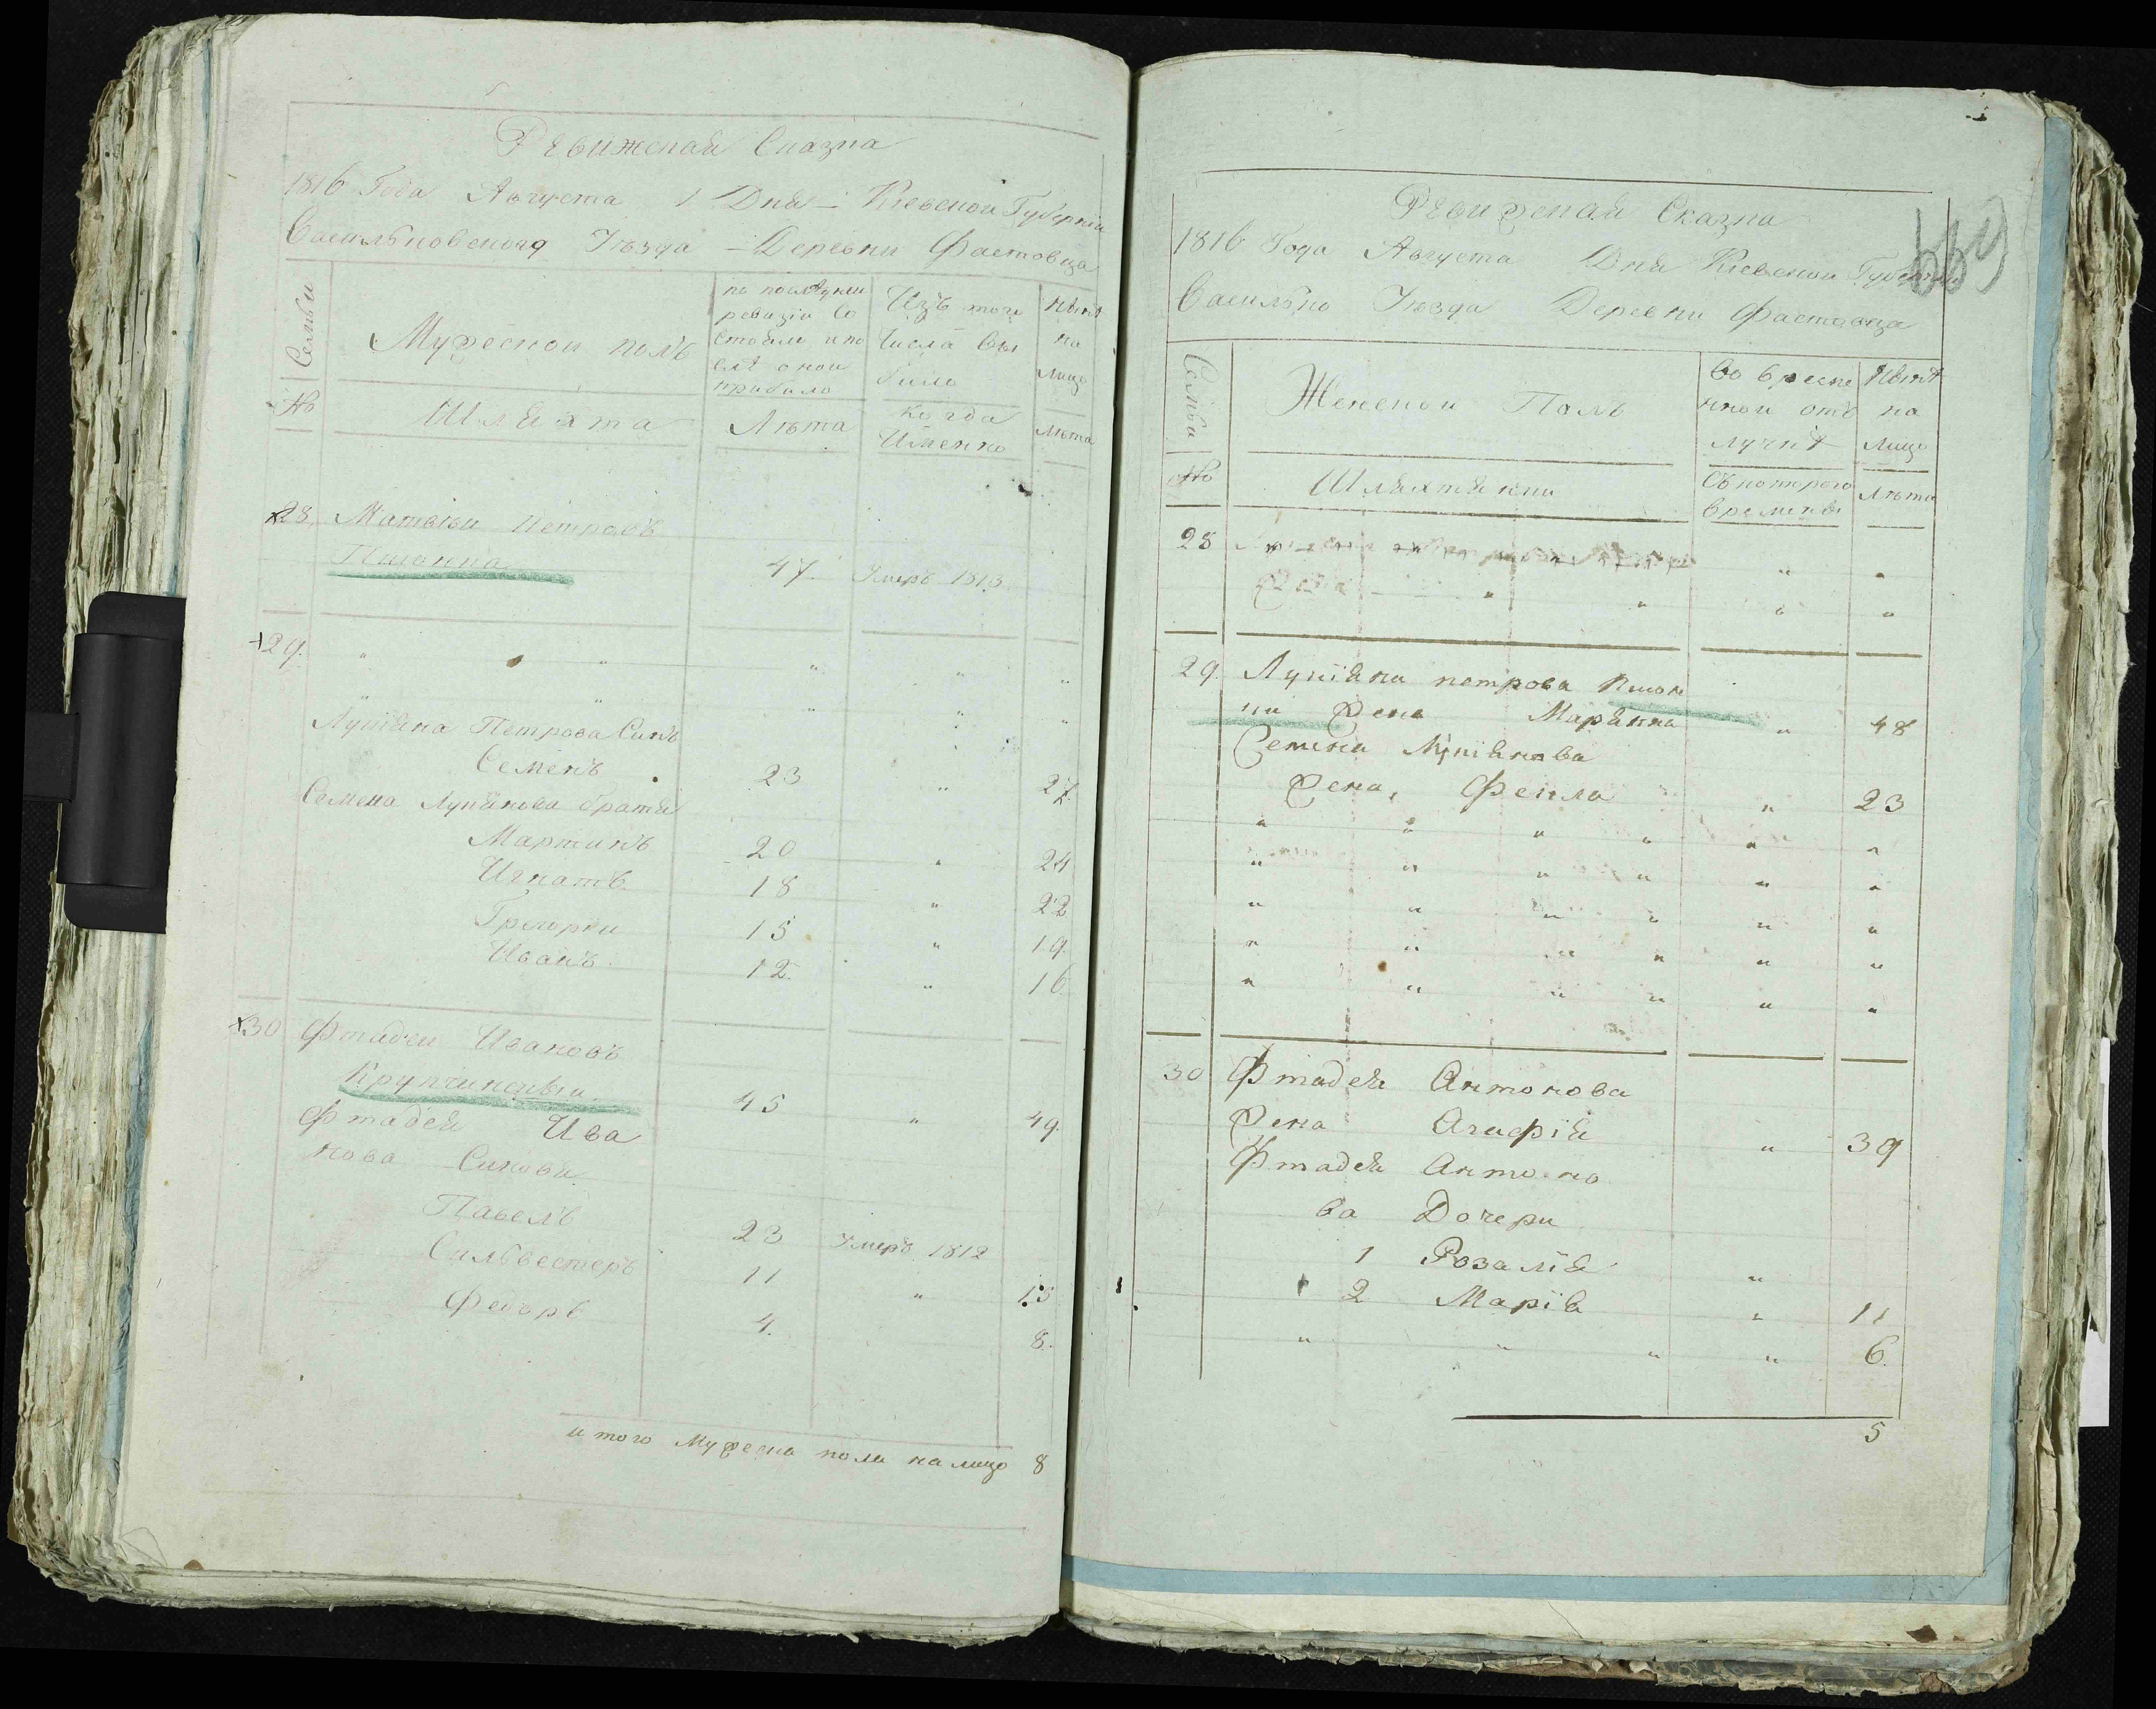 Ревижская Сказка
1816 Года Августа 1 Дня – Киевской Губерніи
Васильковского Уезда – Деревни Фастовца
Семьи
Мужеской полъ
по последней
ревизіи со
стояло и по
слѣ оной
прибыло
Изъ того
Числа вы
было
Нынѣ
на
лицо
№
Шляхта
Лѣта
когда
Именно
Лѣта
28. Матвѣй Петровъ
47. Умеръ 1813.
29. " " " " " "
" " " " "
Лукіяна Петрова Сынъ
Семенъ 23 " 27.
Семена Лукіянова братья
Мартинъ 20 " 24
Игнатъ 18 " 22
Грегорій 15 " 19.
Иванъ 12. " 16.
30 Фтадей Ивановъ
Крупчинскій 45 " 49.
Фтадея Ива
нова Синови
Павелъ 23 Умеръ 1812
Сильвестеръ 11 " 15
Федоръ 4. 8.
итого Мужеска пола на лицо 8
Ревижская Сказка
669
1816 Года Августа Дня Киевской Губерни
Василько Уезда Деревни Фастовца
Семьи
Женской Полъ
Во времен
ной отъ
лучкѣ
Нынѣ
на
Лицо
№
Шляхтянки
Съ которого
времени
Лѣта
28 " "
" " " "
29. Лукіяна петрова Пшон
ки Жена Маріянна " 48
Семена Лукіянова
Жена, Фекла " 23
" " " " " "
" " " " " "
" " " " " "
" " " " " "
" " " " " "
30 Фтадея Антонова
Жена Агафія " 39
Фтадея Антоно
ва Дочери
1 Розалія "
2 Марія " 11
" " " " 6.
5